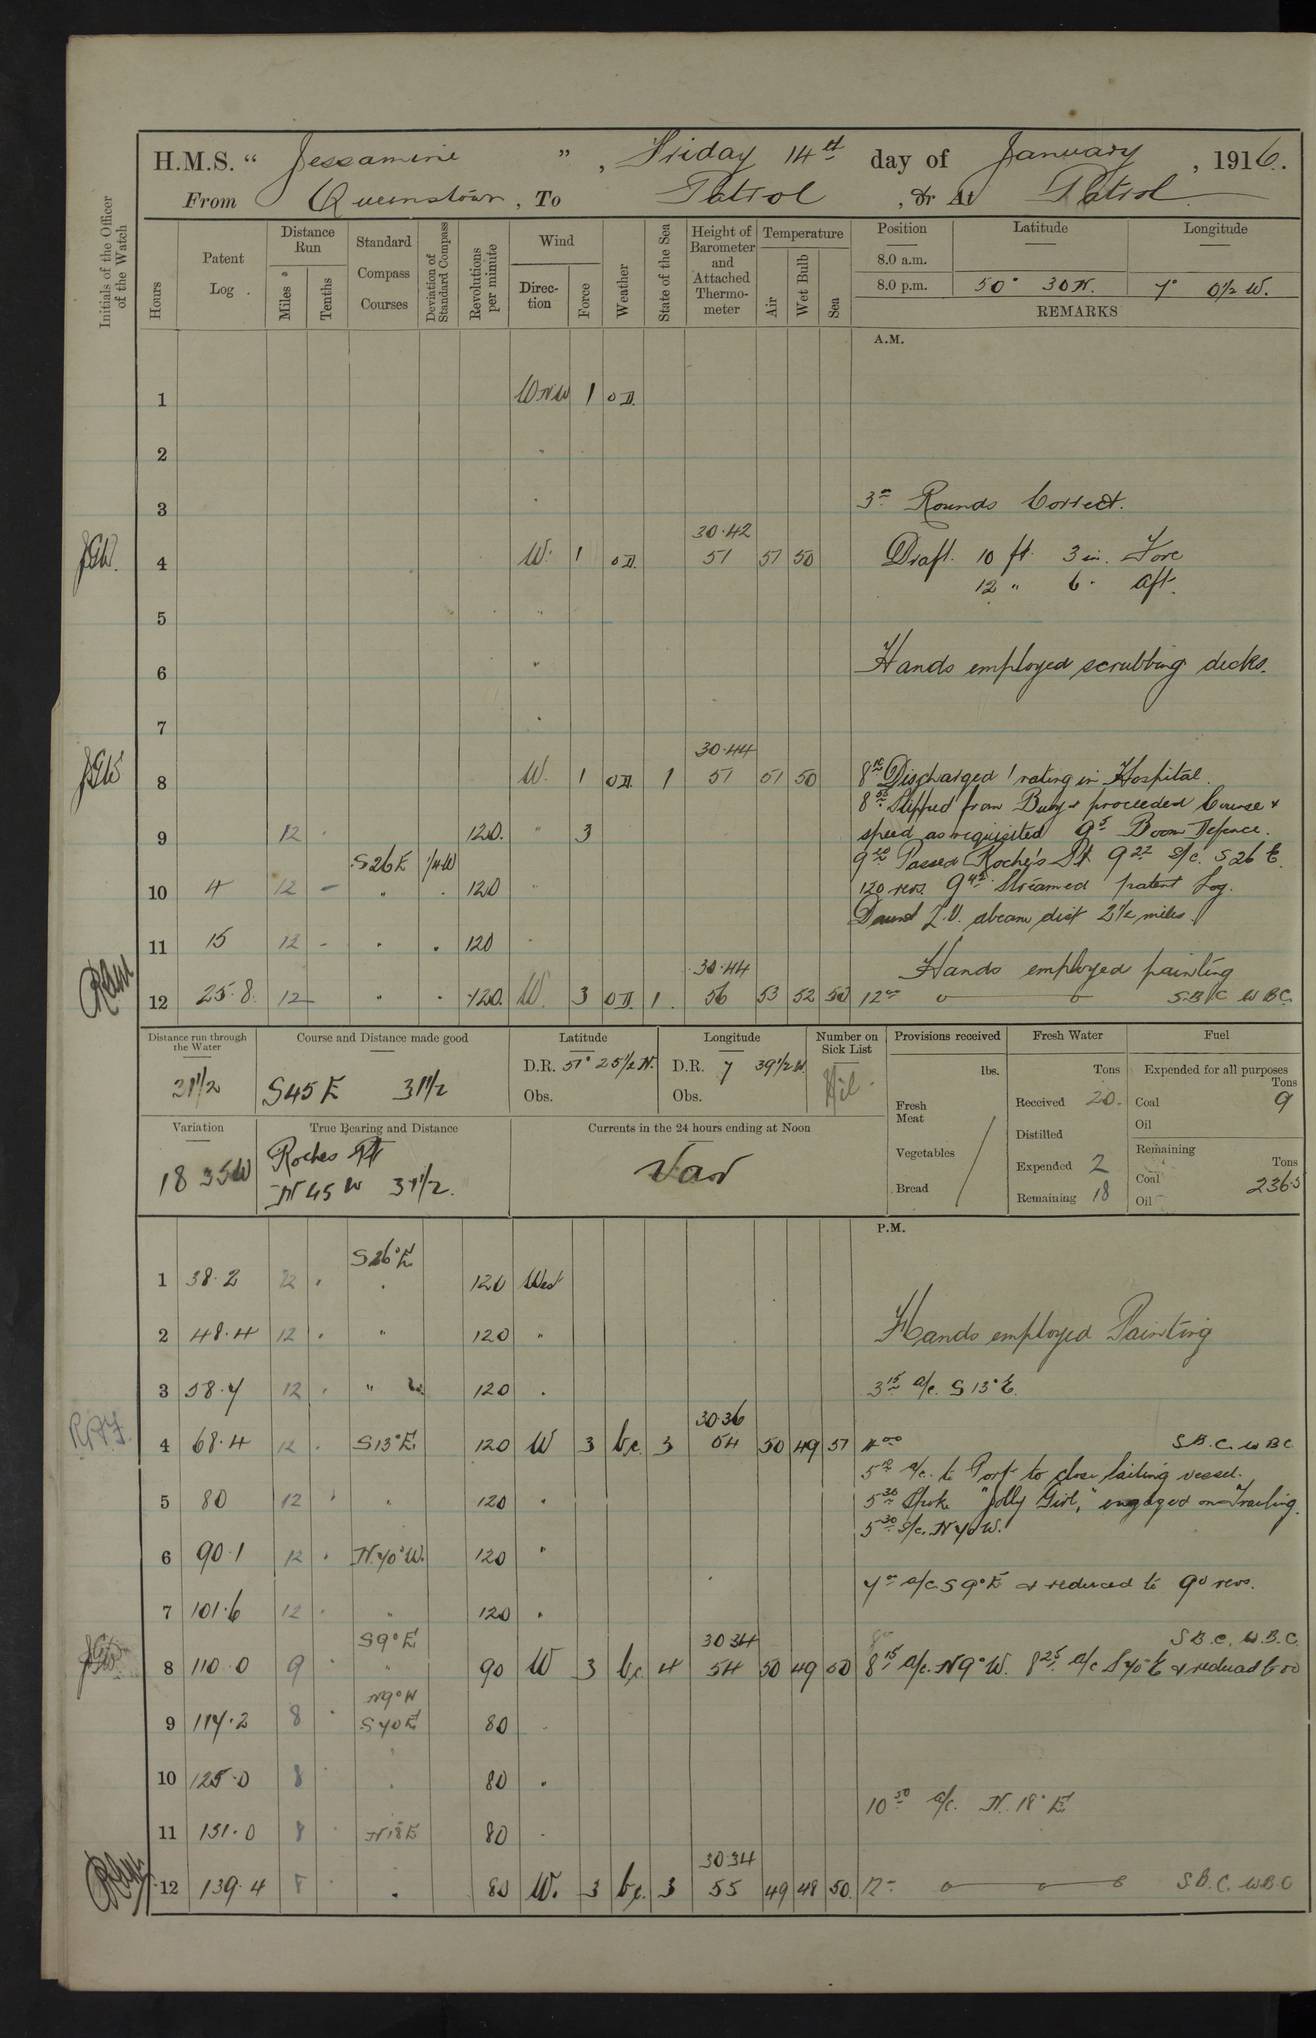 H.M.S. "Jessamine", Friday 14th day of January, 1916.
From Queenstown, To Patrol, or At Patrol
Initials of the Officer of the Watch
Hours
Patent Log.
Distance Run
Miles
Tenths
Standard Compass Courses
Deviation of Standard Compass
Revolutions per minute
Wind
Direction
Force
Weather
State of the Sea
Height of Barometer and Attached Thermometer
Temperature
Air
Wet Bulb
Sea
Position Latitude Longitude
8.0 a.m.
8.0 p.m. 50° 30 N. 7° 0½ W.
REMARKS
A.M.
1 WNW 1 OD.
2 "
3 " 3 Rounds Correct.
30.42
JGW. 4 W. 1 OD. 51 51 50 Draft. 10 ft. 3 in. Fore
12 " 6 " aft.
5 "
6 " Hands employed scrubbing decks.
7 "
30.44
8 W. 1 OD. 1 51 51 50 8 Discharged 1 rating in Hospital.
8 55 Slipped from Buoy & proceeded Course &
9 12 120. " 3 speed as requisited 9 5 Boom Defence.
S26E ¼W 9 20 Passed Roche's Pt 9 22 s/c. S26E.
10 4 12 - " . 120 " 120 revs. 9 42 Streamed patent Log.
Daunt L.V. abeam dist 2½ miles.
11 15 12 - " . 120 "
30.44 Hands employed painting
12 25.8 12 - " . 120. W. 3 OD. 1. 56 53 52 50 12 S.B.C. W.B.C.
Distance run through the Water
21½
Course and Distance made good
S45E 31½
Latitude
D.R. 51° 25½ N.
Obs.
Longitude
D.R. 7 39½ W.
Obs.
Number on Sick List
Nil.
Provisions received
lbs.
Fresh Meat
Vegetables
Bread
Fresh Water
Tons
Received 20.
Distilled
Expended 2
Remaining 18
Fuel
Expended for all purposes
Tons
Coal 9
Oil
Remaining
Tons
Coal 236.5
Oil
Variation
18 35W
True Bearing and Distance
Roches Pt
N45W 31½.
Currents in the 24 hours ending at Noon
Var
P.M.
S26°E
1 38.2 12 . " 120 West
2 48.4 12 . " 120 " Hands employed Painting
3 58.7 12 . " 120 . 3 15 a/c. S13°E.
30.36
4 68.4 12 . S13°E. 120 W 3 bc. 3 54 50 49 51 4 00 S.B.C. W.B.C
5 12 a/c. to Port to close sailing vessel.
5 80 12 . " 120 . 5 30 Spoke "Jolly Girl," engaged on Trawling.
5 30 s/c. N70W.
6 90.1 12 . N.70°W. 120 "
7 a/c. S9°E & reduced to 90 revs.
7 101.6 12 . " 120 .
S9°E 30 34 S.B.C. W.B.C.
8 110.0 9 . " 90 W 3 bc. 4 54 50 49 50 8 15 a/c. N9°W. 8 25 a/c S70°E & reduced to 80
N9°W
9 117.2 8 . S70E 80 .
10 125.0 8 . . 80 .
10 50 a/c. N.18°E
11 131.0 8 . N18E 80 .
30 34
12 139.4 8 . . 80 W. 3 bc. 3 55 49 48 50. 12 S.B.C. W.B.C